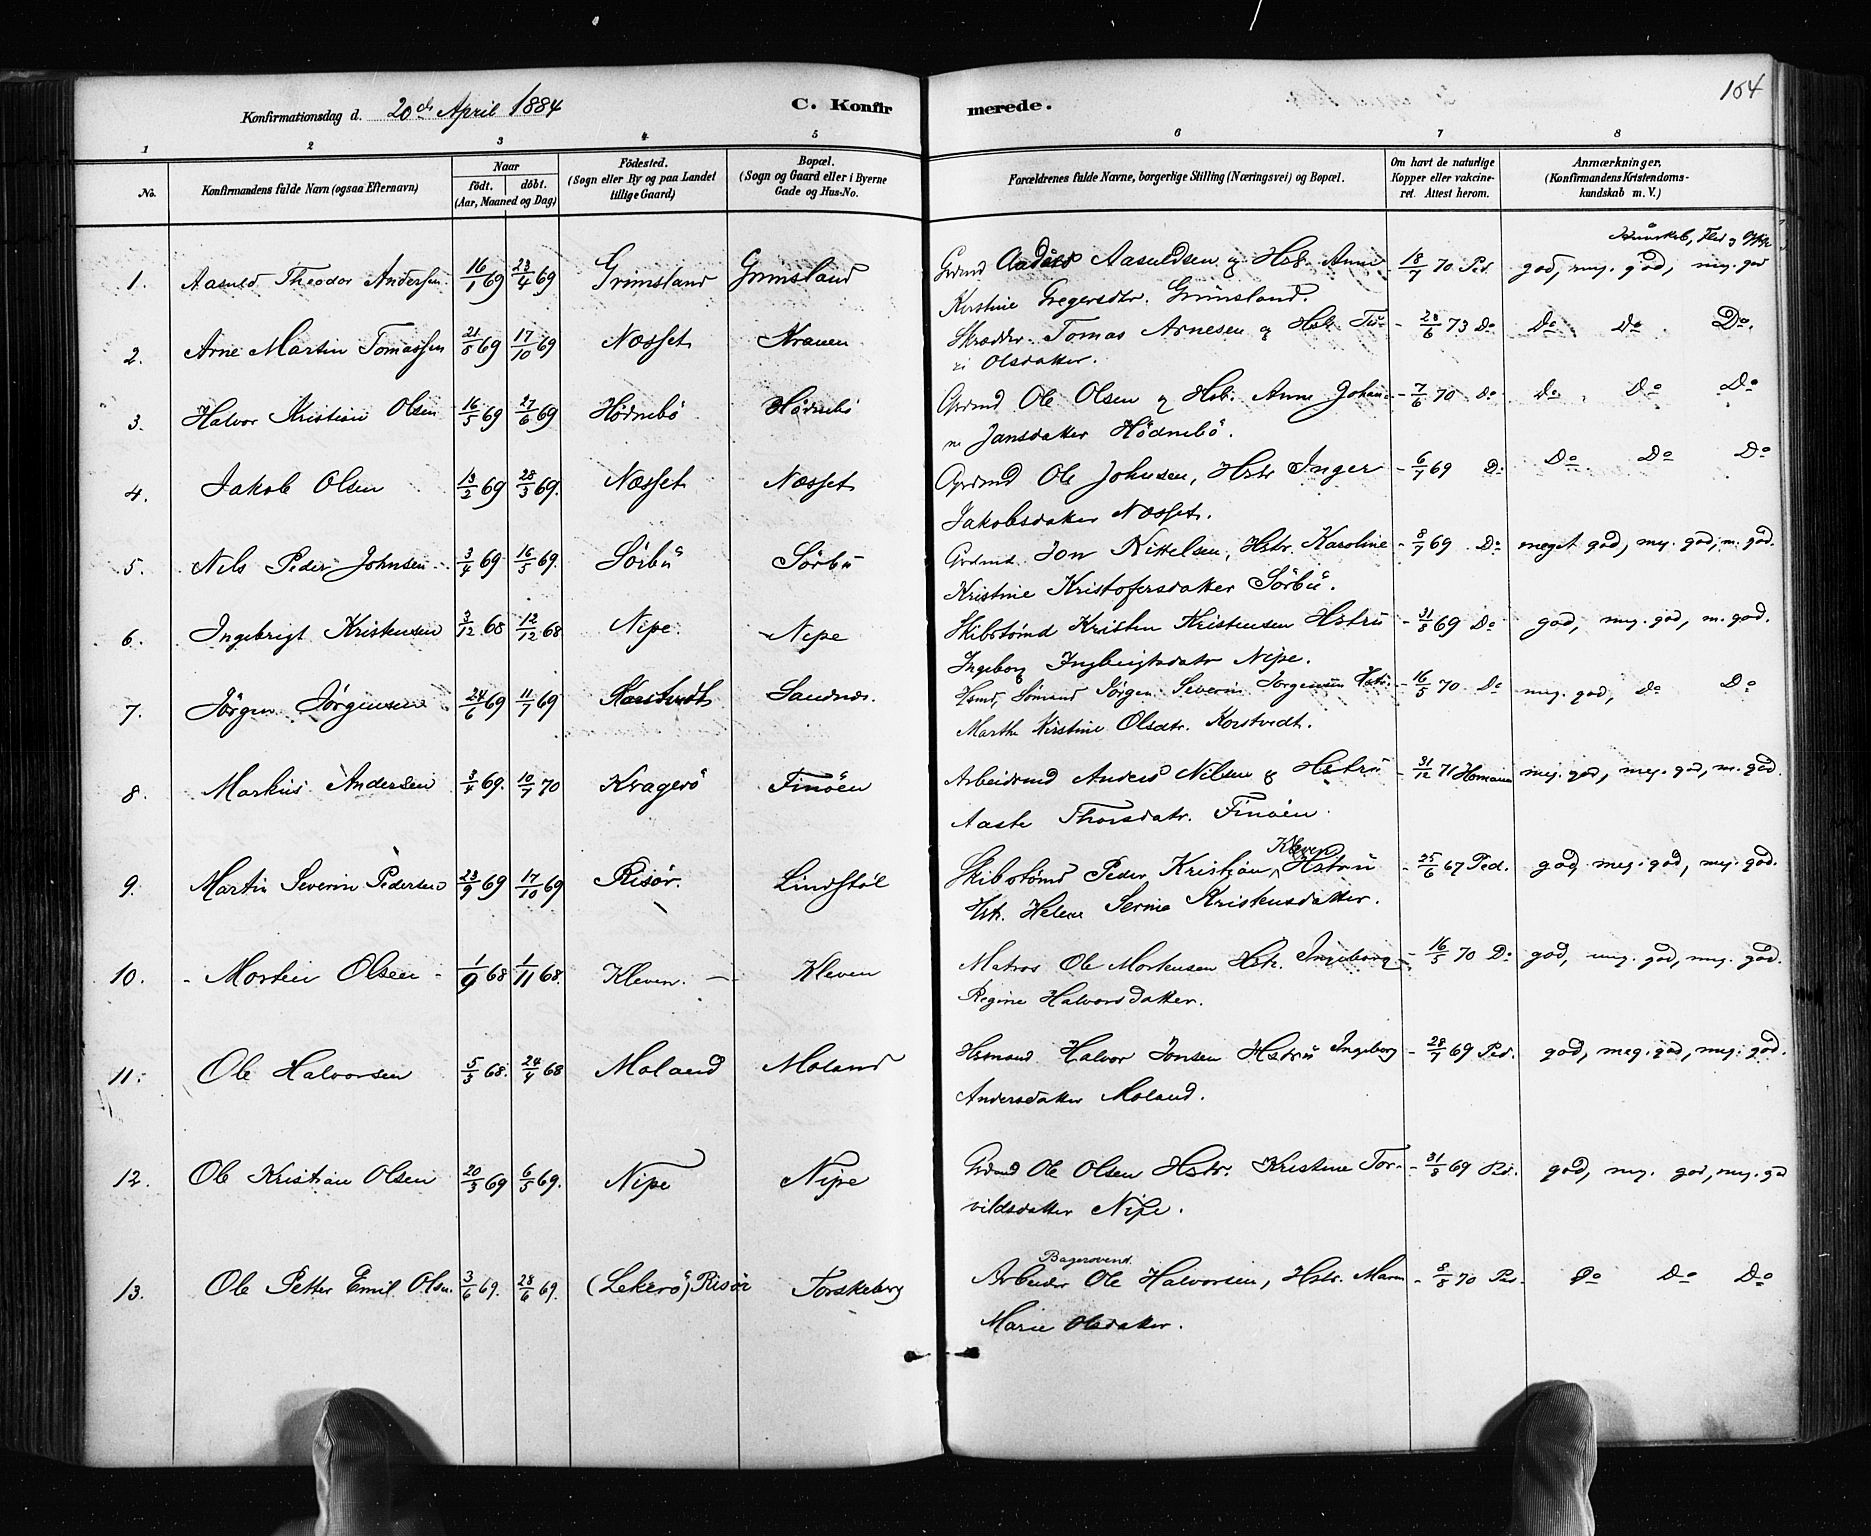 Konfirmationsdag d. 20de April 1884
C. Konfirmerede.
164
1 2 3 4 5 6 7 8
No.
Konfirmandens fulde Navn (ogsaa Efternavn)
Naar
födt. döbt.
(Aar, Maaned og Dag)
Födested.
(Sogn eller By og paa Landet
tillige Gaard)
Bopæl.
(Sogn og Gaard eller i Byerne
Gade og Hus-No.
Forældrenes fulde Navne, borgerlige Stilling (Næringsvei) og Bopæl.
Om havt de naturlige
Kopper eller vakcine-
ret. Attest herom.
Anmærkninger.
(Konfirmandens Kristendoms-
kundskab m. V.)
Kundskab, Flid
1. Aasuld Theodor Andersen 16/1 69 23/4 69 Grimsland Grimsland Grdmd Anders Aasuldsen og Hst. Anne 18/7 70 Ped. god, meg. god, meg. god
Kirstine Gregersdtr. Grimsland.
2. Arne Martin Tomassen 21/5 69 17/10 69 Næsset Kranen Skrædder Tomas Arnesen og Hst. 28/6 73 Do Do Do Do.
Olsdatter.
3. Halvor Kristian Olsen 16/5 69 27/6 69 Hödnebö Hödnebö Grdmd Ole Olsen og Hst. Anne Johan- 7/6 70 Do Do Do Do
ne Jansdatter Hödnebö.
4. Jakob Olsen 13/2 69 28/3 69. Næsset Næsset Grdmd Ole Johnsen, Hstr Inger 6/7 69 Do Do Do Do
Jakobsdatter Næsset.
5. Nils Peder Johnsen 3/4 69 16/5 69. Sörbü Sörbü Grdmd. Jon Kittelsen, Hstr. Karoline 8/7 69 Do meget god, meg. god, m. god.
Kristine Kristofersdatter Sörbü.
6. Ingebrigt Kristensen 3/12 68 12/12 68 Nipe. Nipe Skibstømd Kristen Kristensen Hstrü 31/8 69 Do god, meg. god, m. god.
Ingeborg Ingbrigtsdatr Nipe.
7. Jörgen Jörgensen 24/6 69 11/7 69 Korstvedt Sandnæs. Hsmd, Sömand Jörgen Severin Jörgensen Hstr. 16/5 70 Do meg. god, Do Do
Marthe Kirstine Olsdtr. Korstvedt.
8. Markus Andersen 3/4 69. 10/7 70 Kragerö Finöen Arbeidsmd Anders Nilsen og Hstrü 31/12 71 Homann meg. god, meg. god, m. god.
Aaste Thorsdatr. Finöen.
9. Martin Severin Pedersen 23/9 69 17/10 69 Risör. Lindstöl Skibstømd Peder Kristian Kleven, Hstrü 25/6 67 Ped. god, meg. god, meg. god.
Hst. Helene Serine Kristensdatter.
10. Morten Olsen 1/9 68 1/11 68. Kleven. Kleven Matros Ole Mortensen Hstr. Ingeborg 16/5 70 Do god, meg. god, meg. god.
Regine Halvorsdatter.
11. Ole Halvorsen 5/3 68. 24/4 68 Moland Moland Hsmand Halvor Jonsen Hstrü Ingeborg 28/7 69 Ped. god, meg. god, meg. god.
Andersdatter Moland.
12. Ole Kristian Olsen 20/3 69 6/5 69. Nipe Nipe Grdmd Ole Olsen Hstr. Kristine Tor- 31/8 69 Ped. god, meg. god, meg. god
vildsdatter Nipe.
13. Ole Petter Emil Olsen. 3/6 69. 28/6 69. (Lekerö) Risör Torskeberg Arbeider Ole Halvorsen, Hstr. Maren 8/5 70 Ped. Do Do Do
Marie Olsdatter.